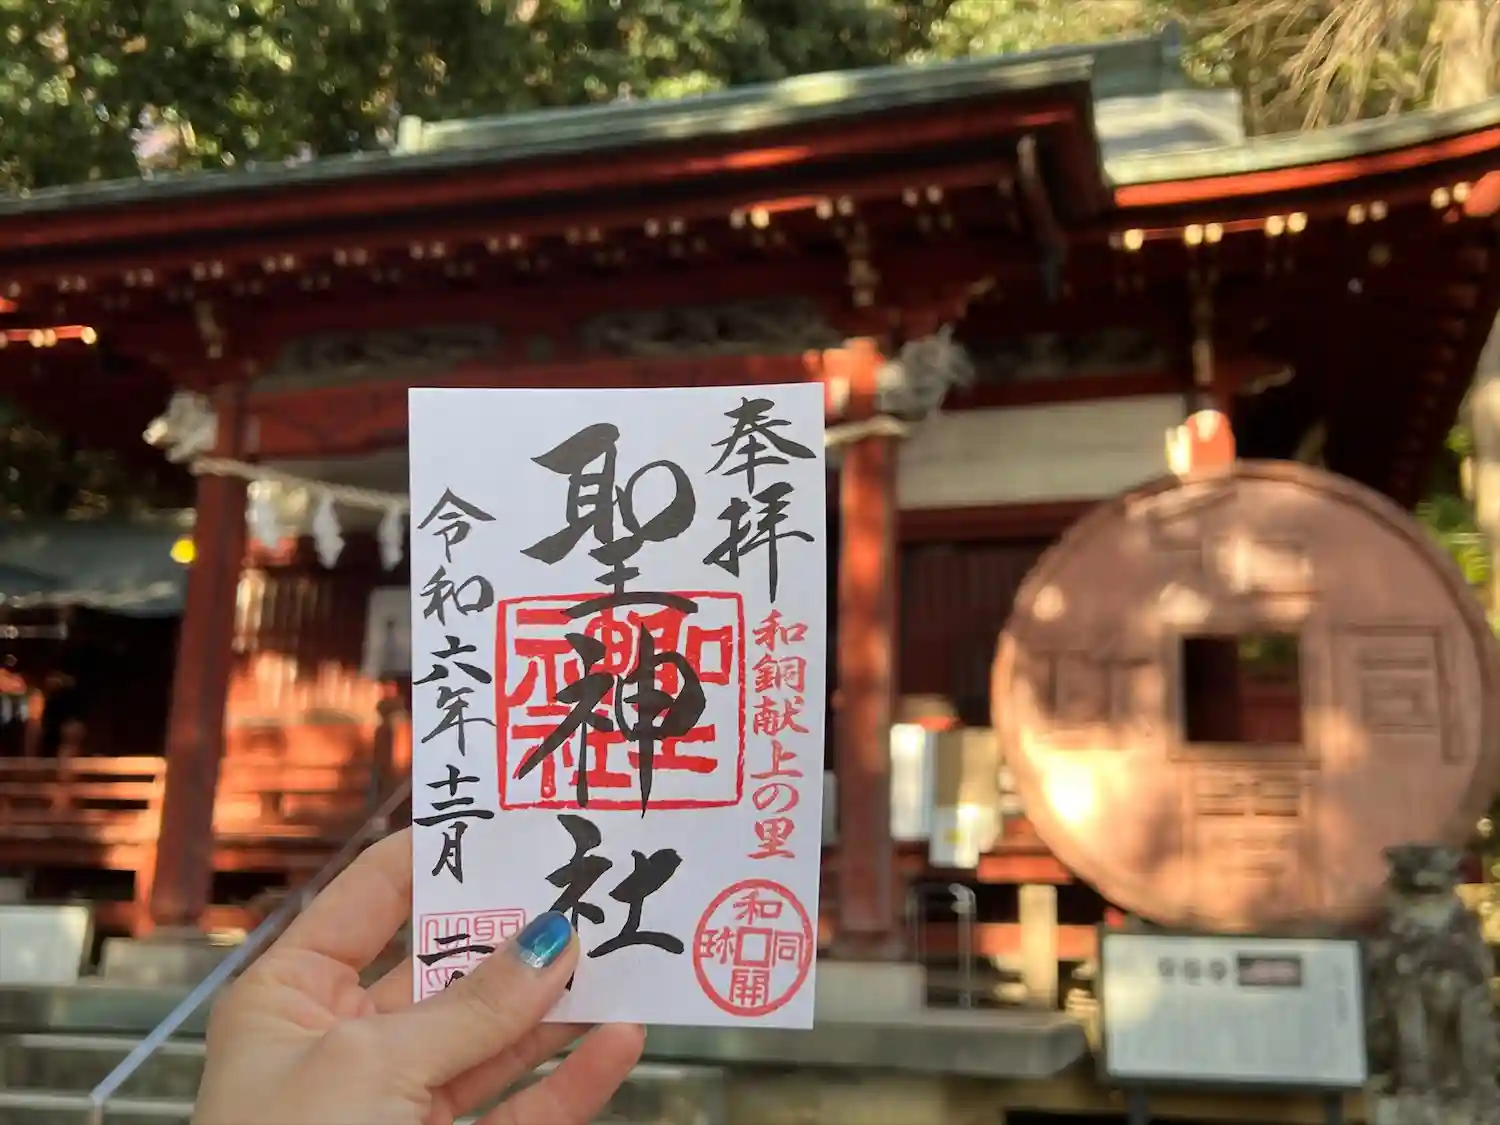 奉拝
和銅献上の里
和同開珎
聖神社
聖神社
令和六年十二月二